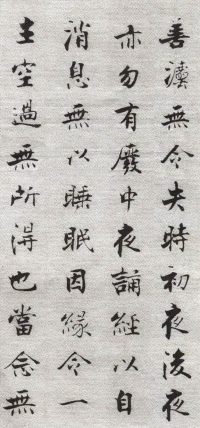 善灋無令失時初夜後夜
亦勿有廢中夜誦經以自
消息無以睡眠因緣令一
生空過無所得也當念無